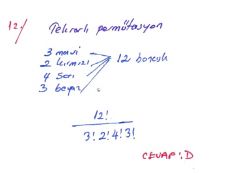 12/ Tekrarlı permütasyon
3 mavi
2 kırmızı 12 boncuk
4 sarı
3 beyaz
12!
3! 2! 4! 3!
CEVAP: D